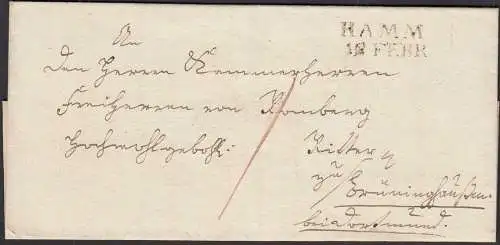 HAMM
18 FEBR
An
den Herrn Kammerherrn
Freiherrn von Romberg
Hochwohlgebohr:
Ritter
zu
Brüninghausen
bei Dortmund.